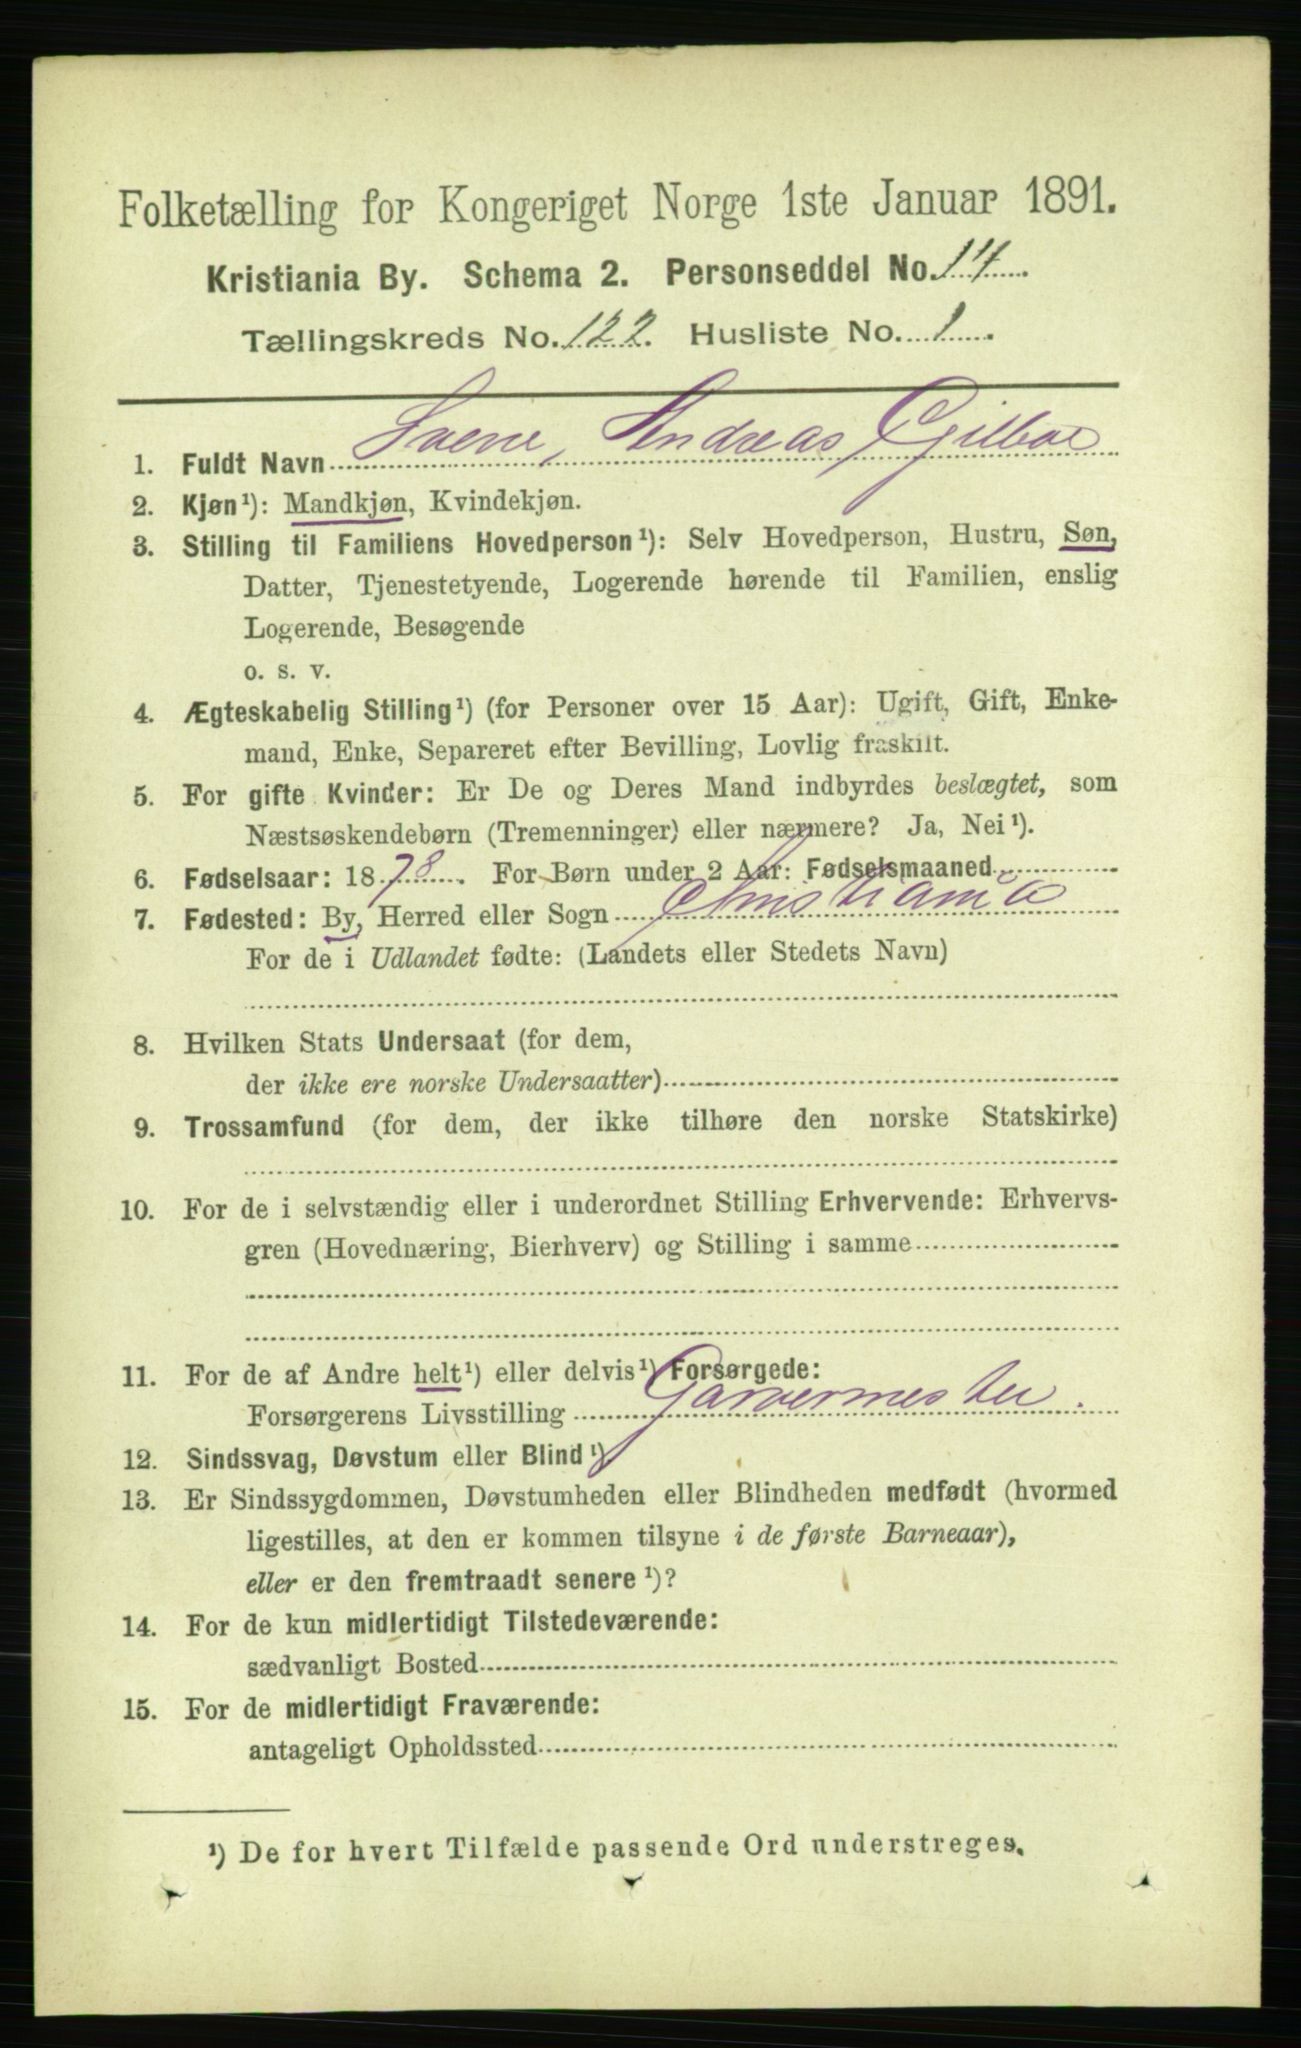 Folketælling for Kongeriget Norge 1ste Januar 1891.
Kristiania By. Schema 2. Personseddel No. 14
Tællingskreds No. 122. Husliste No. 1
1. Fuldt Navn Andreas Gilboe
2. Kjøn¹): Mandkjøn, Kvindekjøn.
3. Stilling til Familiens Hovedperson¹): Selv Hovedperson, Hustru, Søn,
Datter, Tjenestetyende, Logerende hørende til Familien, enslig
Logerende, Besøgende
o. s. v.
4. Ægteskabelig Stilling¹) (for Personer over 15 Aar): Ugift, Gift, Enke-
mand, Enke, Separeret efter Bevilling, Lovlig fraskilt.
5. For gifte Kvinder: Er De og Deres Mand indbyrdes beslægtet, som
Næstsøskendebørn (Tremenninger) eller nærmere? Ja, Nei¹).
6. Fødselsaar: 1878. For Børn under 2 Aar: Fødselsmaaned
7. Fødested: By, Herred eller Sogn Christiania
For de i Udlandet fødte: (Landets eller Stedets Navn)
8. Hvilken Stats Undersaat (for dem,
der ikke ere norske Undersaatter)
9. Trossamfund (for dem, der ikke tilhøre den norske Statskirke)
10. For de i selvstændig eller i underordnet Stilling Erhvervende: Erhvervs-
gren (Hovednæring, Bierhverv) og Stilling i samme
11. For de af Andre helt¹) eller delvis¹) Forsørgede:
Forsørgerens Livsstilling Garvermester.
12. Sindssvag, Døvstum eller Blind¹)
13. Er Sindssygdommen, Døvstumheden eller Blindheden medfødt (hvormed
ligestilles, at den er kommen tilsyne i de første Barneaar),
eller er den fremtraadt senere¹)?
14. For de kun midlertidigt Tilstedeværende:
sædvanligt Bosted
15. For de midlertidigt Fraværende:
antageligt Opholdssted
¹) De for hvert Tilfælde passende Ord understreges.